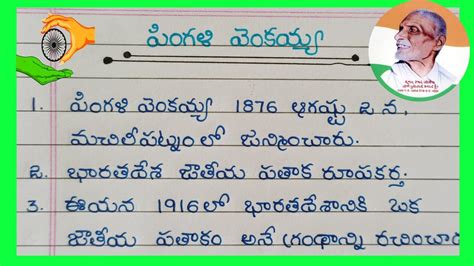 పింగళి వెంకయ్య
1. పింగళి వెంకయ్య 1876 ఆగష్టు 2 న,
మచిలీపట్నం లో జన్మించారు.
2. భారతదేశ జాతీయ పతాక రూపకర్త.
3. ఈయన 1916లో భారతదేశానికి ఒక
జాతీయ పతాకం అనే గ్రంథాన్ని రచించారు